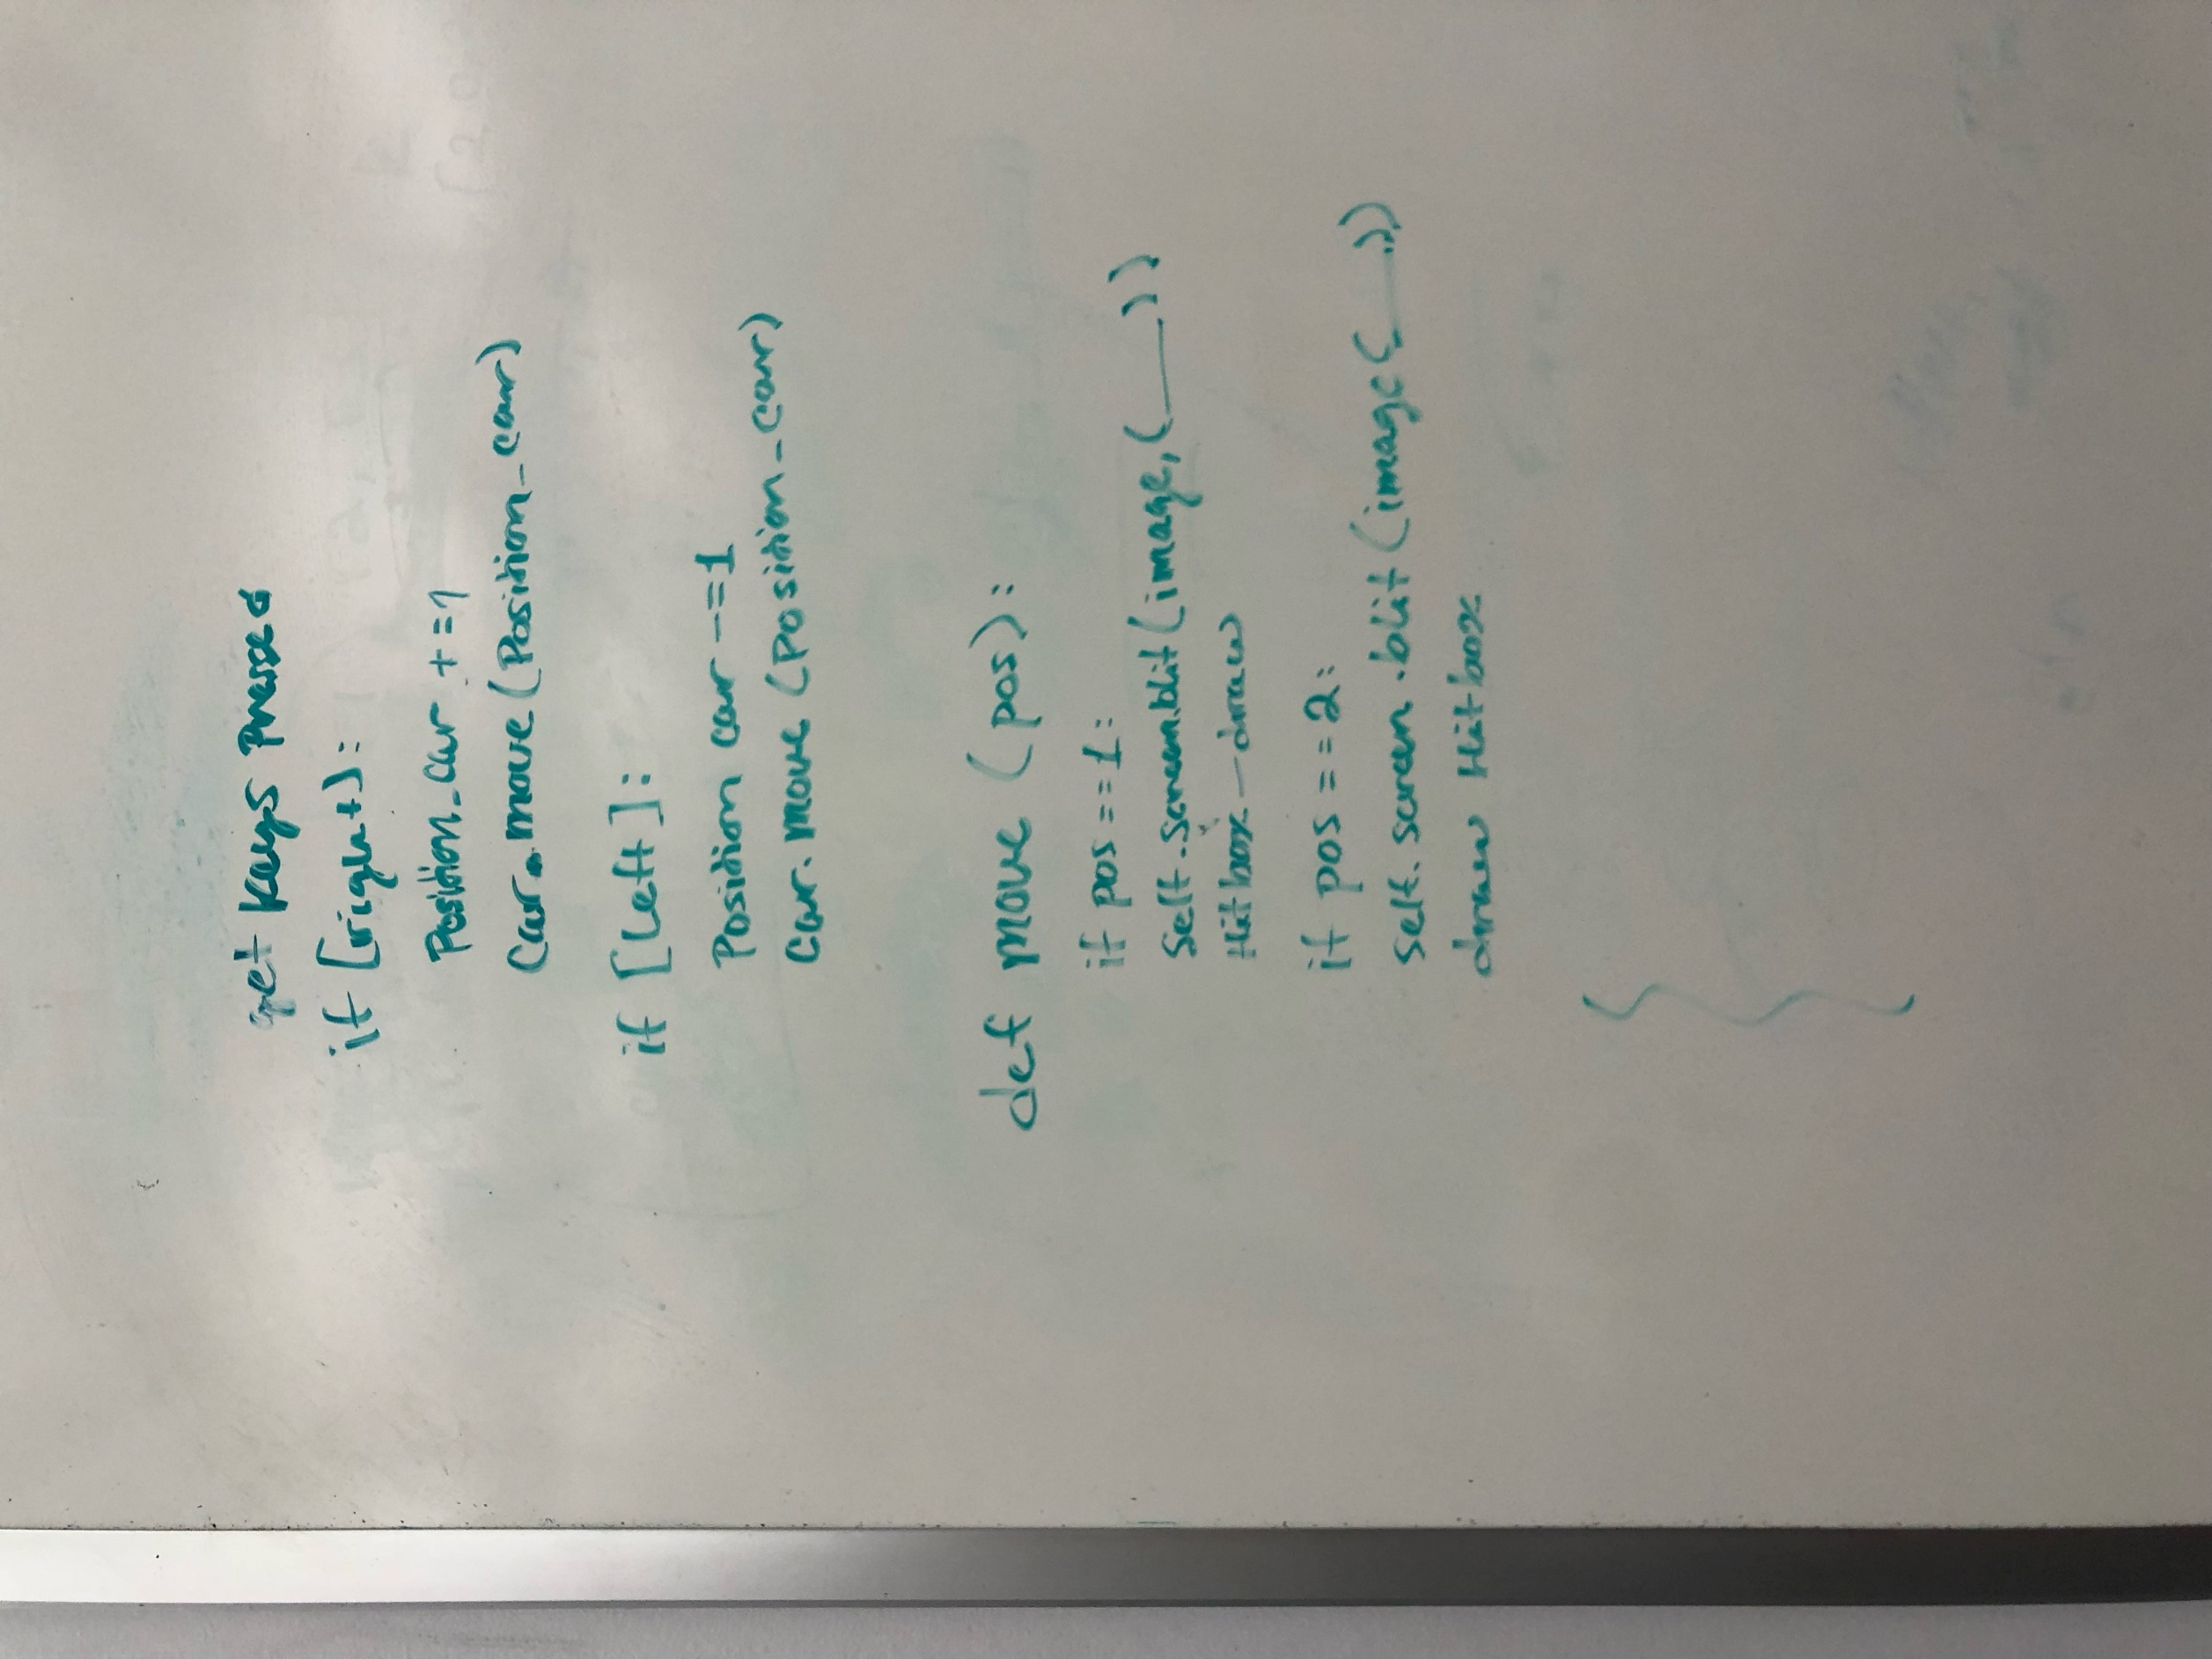 get keys pressed
if [right]:
Position_car +=1
Car.move(Position_car)
if [Left]:
Position car -=1
Car.move (Position_car)
def move (pos):
if pos ==1:
self.screen.blit(image,(___))
Hitbox-draw
if pos ==2:
self.screen.blit(image(___))
draw Hitbox